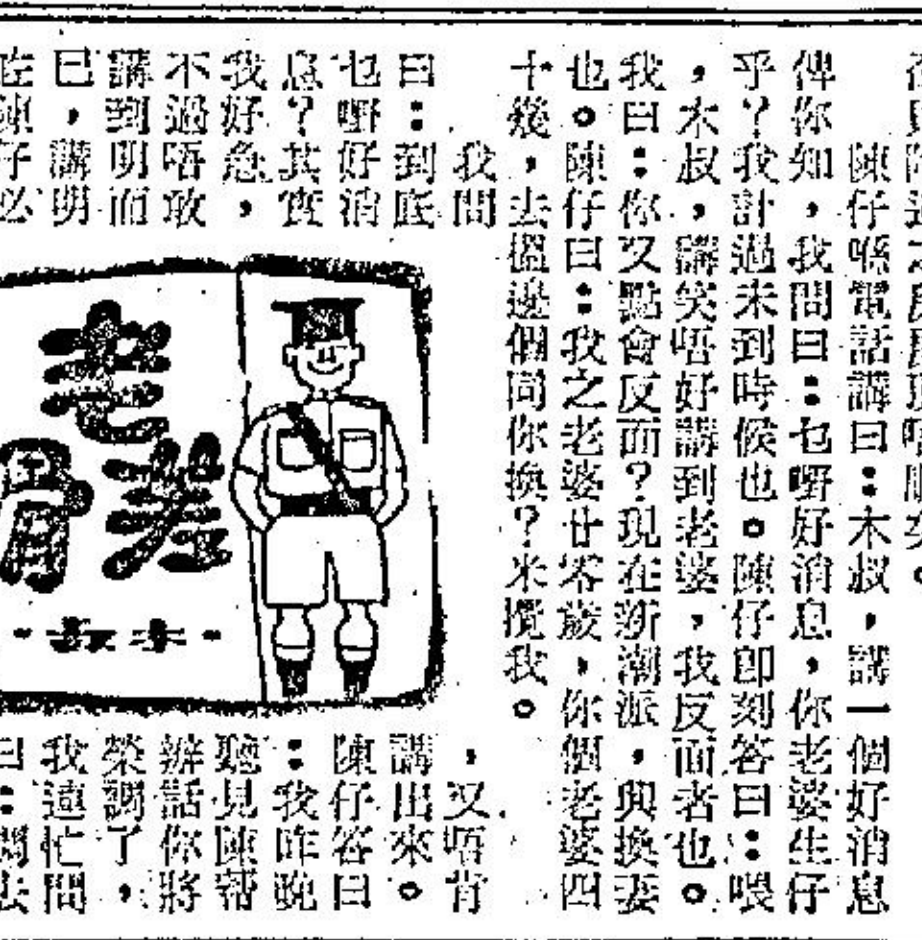 陳仔喺電話講曰：木叔，講一個好消息
俾你知，我問曰：乜嘢好消息，你老婆生仔
乎？我計過未到時候也。陳仔即刻答曰：喂
，木叔，講笑唔好講到老婆，我反面者也。
我曰：你又點會反面？現在新潮派，興換妻
也。陳仔曰：我之老婆廿零歲，你個老婆四
十幾，去搵邊個同你換？米攪我。
我問
曰：到底
乜嘢好消
息？其實
我好急，
不過唔敢
講到明而
已，講明
咗陳仔必
老差骨
·木叔·
，又唔肯
講出來。
陳仔答曰
：我昨晚
聽見陳幫
辦話你將
榮調了，
我連忙問
曰：調去